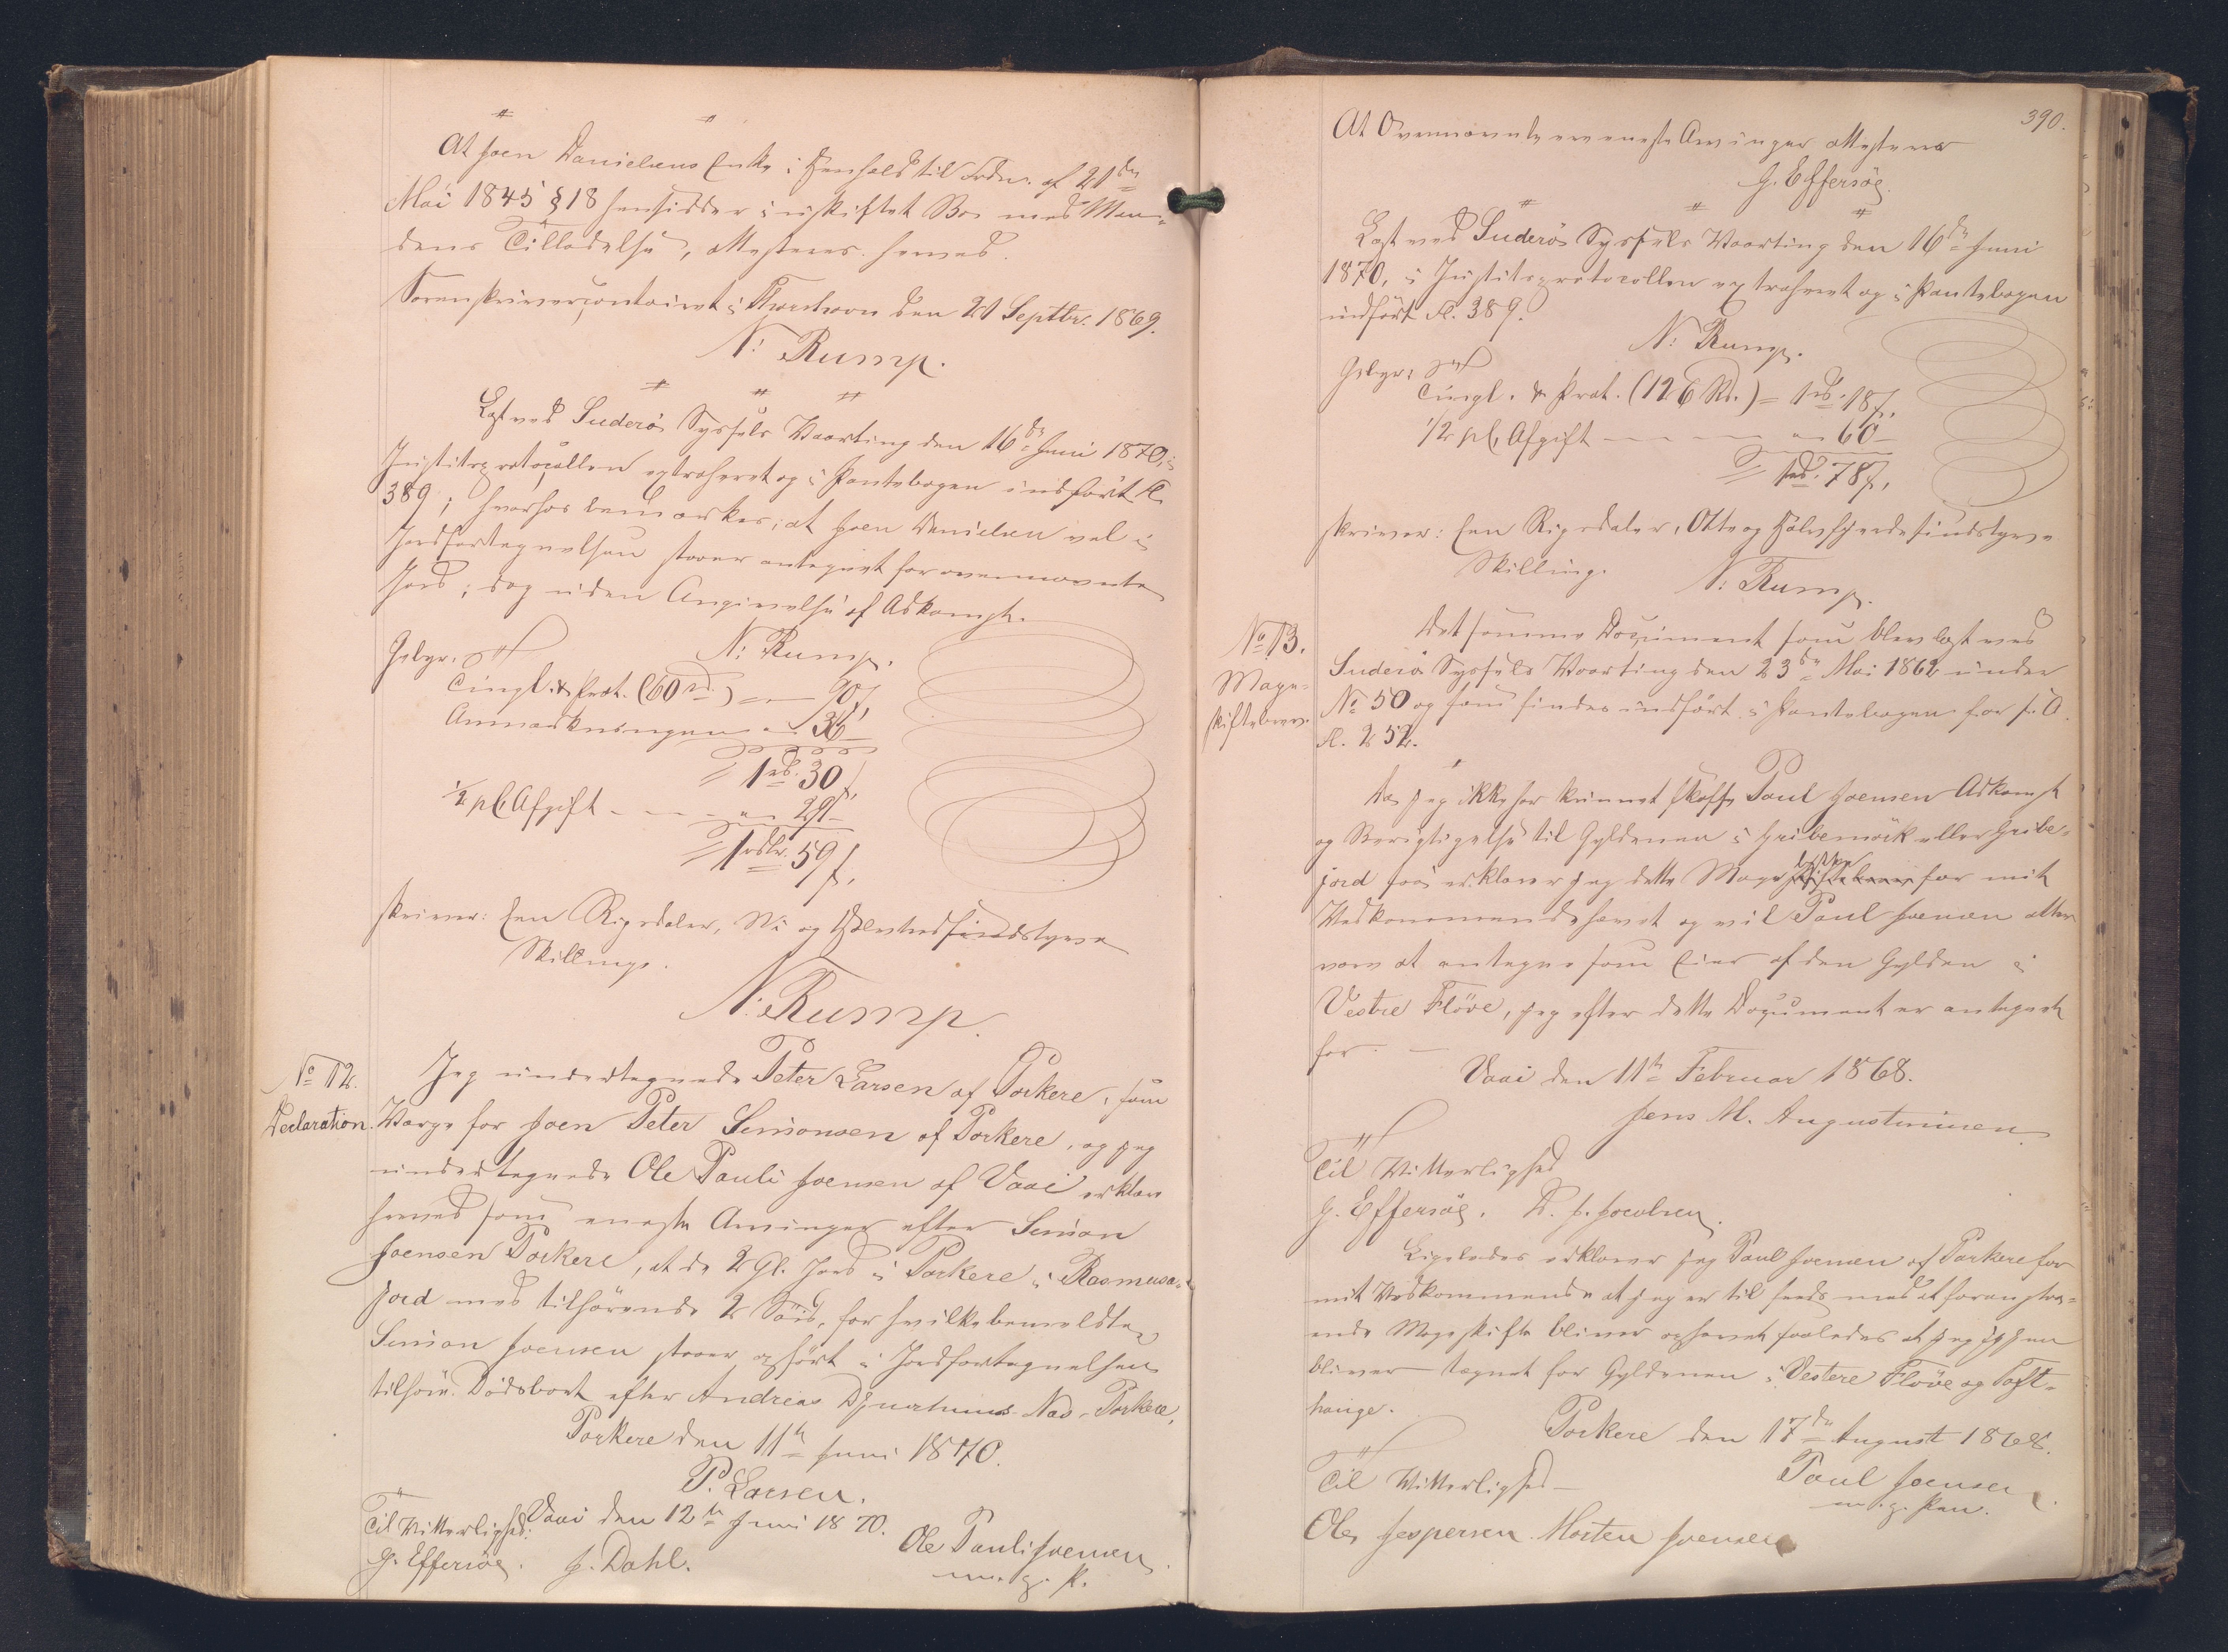 At Joen Danielsens Enke i Henhold til Frdn. af 21de
Mai 1845 § 18 hensidder i uskiftet Bo med Man-
dens Tilladelse, attesteres herved.
Sorenskrivercontoiret i Thorshavn den 21 Septbr. 1869.
N: Rump.
Læst ved Suderø Syssels Vaarting den 16de Juni 1870, i
Justitsprotocollen extraheret og i Pantebogen indført fl.
389; hvorhos bemærkes, at Joen Danielsen vel i
Jordfortegnelsen staaer antegnet for ovennævnte
Jord; dog uden Angivelse af Adkomst.
N: Rump.
Gebyr:
Tingl. & Prot. (60 rd.) = — 90 ſ,
Anmærkningen — 36
1 rd. 30 ſ,
1/2 pC Afgift — 29 —
1 rdlr. 59 ſ.
skriver: Een Rigsdaler, Ni og Halvtredsindstyve
Skilling.
N: Rump.
No 12.
Declaration.
Jeg undertegnede Peter Larsen af Porkere, som
Værge for Joen Peter Simonsen af Porkere, og jeg
undertegnede Ole Pauli Joensen af Vaai erklære
herved som eneste Arvinger efter Simon
Joensen Porkere, at de 2 Gl. Jord i Porkere i Rasmusa-
jord med tilhørende 2 Söid, for hvilke bemeldte
Simon Joensen staaer opført i Jordfortegnelsen
tilhöre Dødsboet efter Andreas Næs, Porkere,
Porkere den 11te Juni 1870.
P. Larsen.
Vaai den 12te Juni 1870.
Til Vitterlighed:
G. Effersøe. J. Dahl.
Ole Pauli Joensen
m. g. P.
390.
At Ovennævnte ere eneste Arvinger attesteres
G. Effersøe.
Læst ved Suderø Syssels Vaarting den 16de Juni
1870, i Justitsprotocollen extraheret og i Pantebogen
indført fl. 389.
N: Rump.
Gebyr:
Tingl. & Prot. (126 Rd.) = 1 rd. 18 ſ.
1/2 pC Afgift — 60 —
1 rd. 78 ſ,
skriver: Een Rigsdaler, Otte og Halvfjerdesindstyve
Skilling.
N: Rump.
No 13.
Mage-
skiftebrev.
Det samme Document som blev læst ved
Suderø Syssels Vaarting den 23de Mai 1862 under
No 50 og som findes indført i Pantebogen for s. A.
fl. 252.
Da jeg ikke har kunnet skaffe Paul Joensen Adkomst
og Berigtigelse til Gyldenen i Gribemörk eller Gribe-
jord saa erklærer jeg dette Mageskifte for mit
Vedkommende hævet og vil Paul Joensen atter
være at antegne som Eier af den Gylden i
Vestre Flöve, jeg efter dette Document er antegnet
for. —
Vaai den 11te Februar 1868.
Jens M. Augustinusen
Til Vitterlighed
G. Effersøe. D. J. Jacobsen.
Ligeledes erklærer jeg Paul Joensen af Porkere for
mit Vedkommende at jeg er tilfreds med at foranstaa-
ende Mageskifte bliver ophævet saaledes at jeg igjen
bliver tegnet for Gyldenen i Vestere Flöve og Toft-
hauge.
Porkere den 17de August 1868.
Paul Joensen
m. g. Pen.
Til Vitterlighed —
Ole Jespersen Morten Joensen